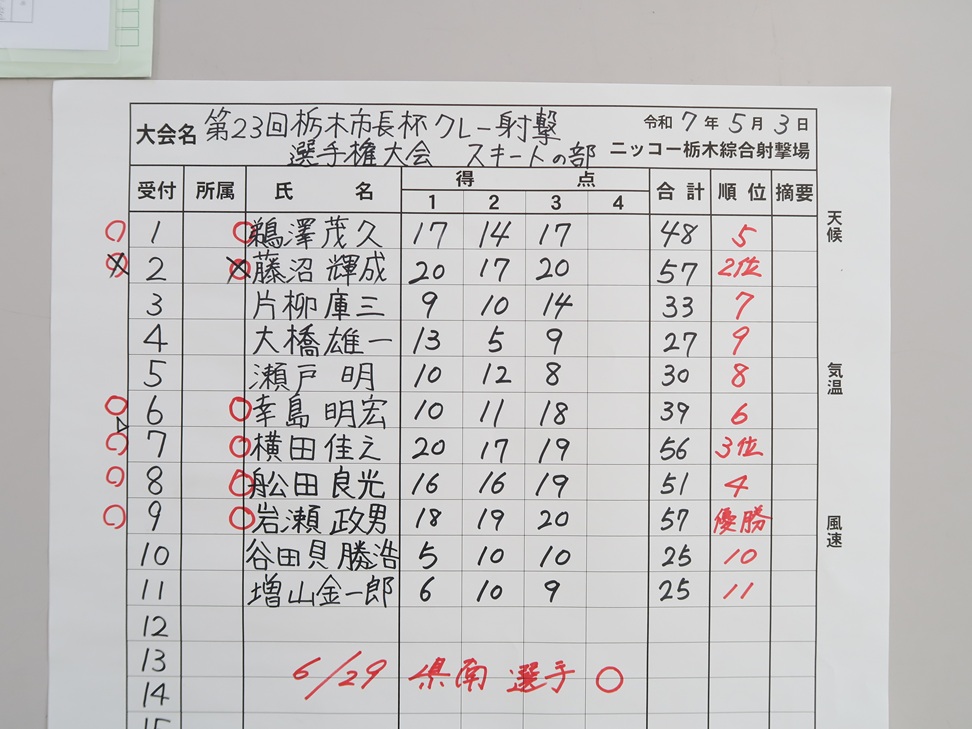 大会名 第23回栃木市長杯クレー射撃 令和7年5月3日
選手権大会 スキートの部 ニッコー栃木綜合射撃場
受付 所属 氏名 得点 合計 順位 摘要
1 2 3 4
天候
1 鵜澤茂久 17 14 17 48 5
2 藤沼輝成 20 17 20 57 2位
3 片柳庫三 9 10 14 33 7
4 大橋雄一 13 5 9 27 9
気温
5 瀬戸明 10 12 8 30 8
6 幸島明宏 10 11 18 39 6
7 横田佳之 20 17 19 56 3位
8 舩田良光 16 16 19 51 4
風速
9 岩瀬政男 18 19 20 57 優勝
10 谷田貝勝浩 5 10 10 25 10
11 増山金一郎 6 10 9 25 11
12
13
6/29 県南選手 ○
14
15